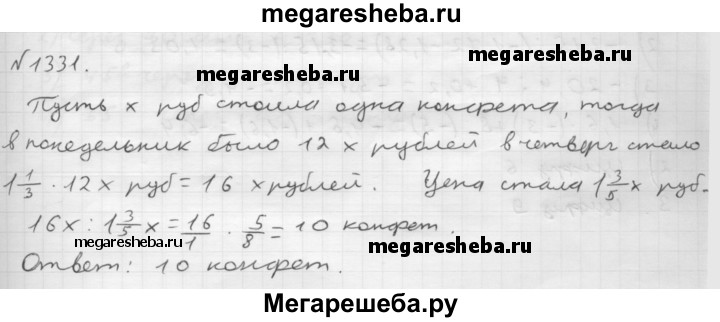 megaresheba.ru
№1331.
megaresheba.ru
Пусть x руб стоила одна конфета, тогда
в понедельник было 12 x рублей в четверг стало
1 1/3 · 12 x руб = 16 x рублей. Цена стала 1 3/5 x руб.
16x : 1 3/5 x = 16/1 · 5/8 = 10 конфет.
megaresheba.ru
megaresheba.ru
Ответ: 10 конфет.
Мегарешеба.ру